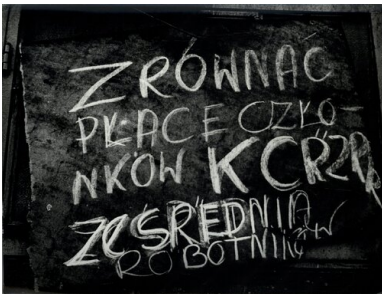 ZRÓWNAĆ
PŁACE CZŁO-
NKÓW KCRZZ
ZE ŚREDNIĄ
ROBOTNIKÓW